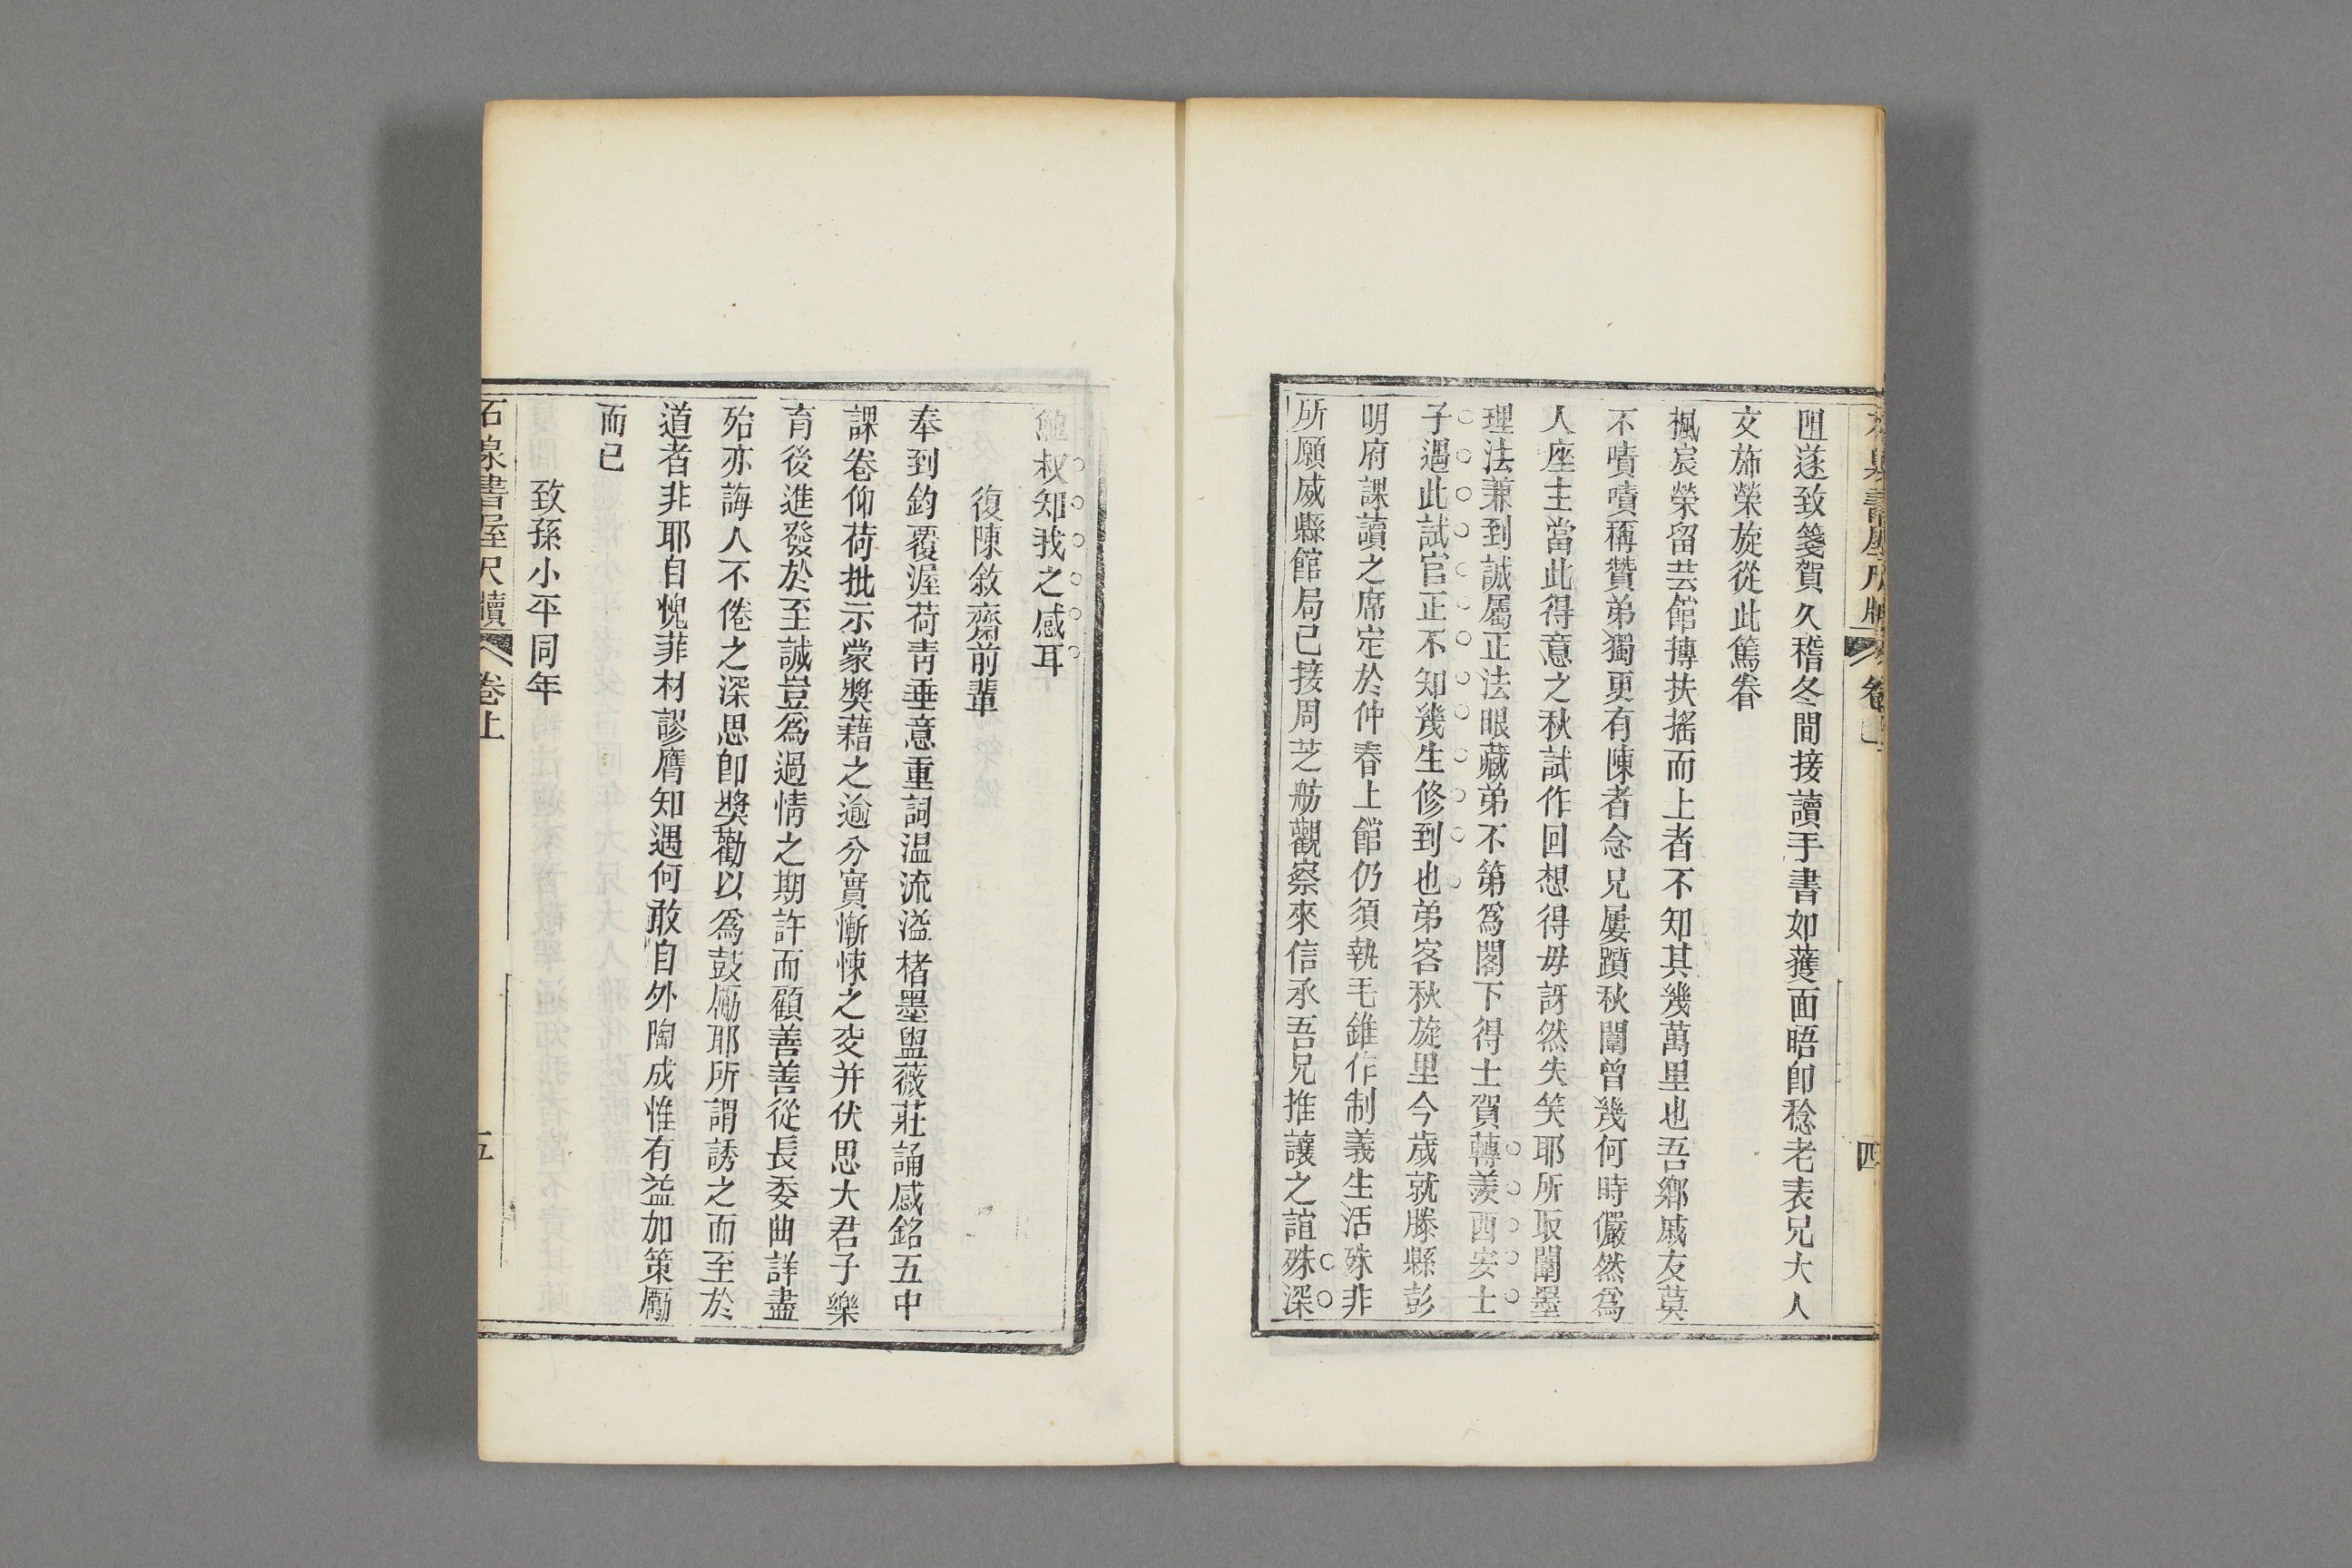 阻遂致箋賀久稽冬間接讀手書如獲面晤卽稔老表兄大人
文斾榮旋從此篤眷
楓宸榮留芸館摶扶搖而上者不知其幾萬里也吾鄉戚友莫
不嘖嘖稱贊弟獨更有陳者念兄屢躓秋闈曾幾何時儼然爲
人座主當此得意之秋試作回想得毋訝然失笑耶所取闈墨
理法兼到誠屬正法眼藏弟不第爲閣下得士賀轉羨西安士
子遇此試官正不知幾生修到也弟客秋旋里今歲就滕縣彭
明府課讀之席定於仲春上館仍須執毛錐作制義生活殊非
所願威縣館局已接周芝舫觀察來信承吾兄推讓之誼殊深
鮑叔知我之感耳
復陳敘齋前輩
奉到鈞覆渥荷靑垂意重詞温流溢楮墨盥薇莊誦感銘五中
課卷仰荷批示蒙奬藉之逾分實慚悚之交并伏思大君子樂
育後進發於至誠豈爲過情之期許而顧善善從長委曲詳盡
殆亦誨人不倦之深思卽奬勸以爲鼓勵耶所謂誘之而至於
道者非耶自愧菲材謬膺知遇何敢自外陶成惟有益加策勵
而已
致孫小平同年
石泉書屋尺牘 卷上 五